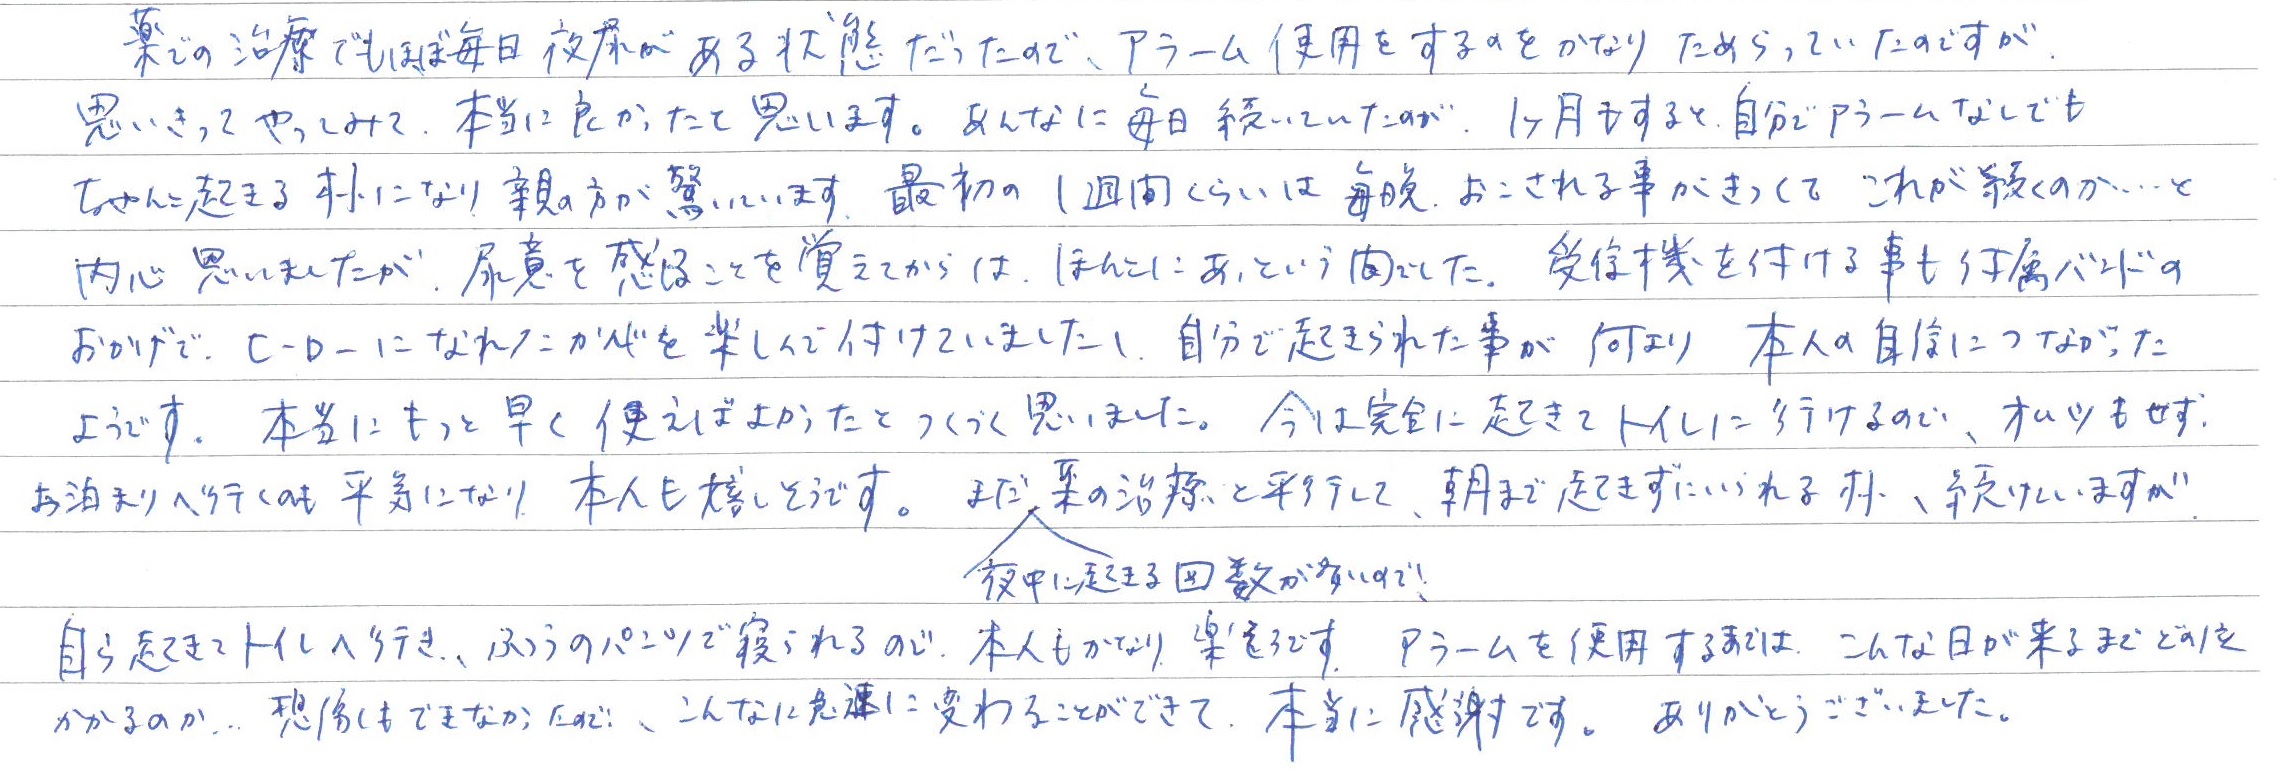 薬での治療でもほぼ毎日夜尿がある状態だったので、アラーム使用をするのをかなりためらっていたのですが、
思いきってやってみて、本当に良かったと思います。あんなに毎日続いていたのが、1ヶ月もすると、自分でアラームなしでも
ちゃんと起きる様になり、親の方が驚いています。最初の1週間くらいは毎晩、おこされる事がきつくてこれが続くのか…と
内心思いましたが、尿意を感じることを覚えてからは、ほんとにあっという間でした。受信機を付ける事も付属バンドの
おかげで、ヒーローになれたかんじを楽しんで付けていましたし、自分で起きられた事が何より本人の自信につながった
ようです。本当にもっと早く使えばよかったとつくづく思いました。今は完全に起きてトイレに行けるので、オムツもせず、
お泊まりへ行くのも平気になり、本人も嬉しそうです。まだ、薬の治療と平行して、朝まで起きずにいられる様、続けていますが、
夜中に起きる回数が多いので!
自ら起きてトイレへ行き、ふつうのパンツで寝られるので、本人もかなり楽そうです。アラームを使用するまでは、こんな日が来るまでどの位
かかるのか… 想像もできなかったので、こんなに急速に変わることができて、本当に感謝です。ありがとうございました。